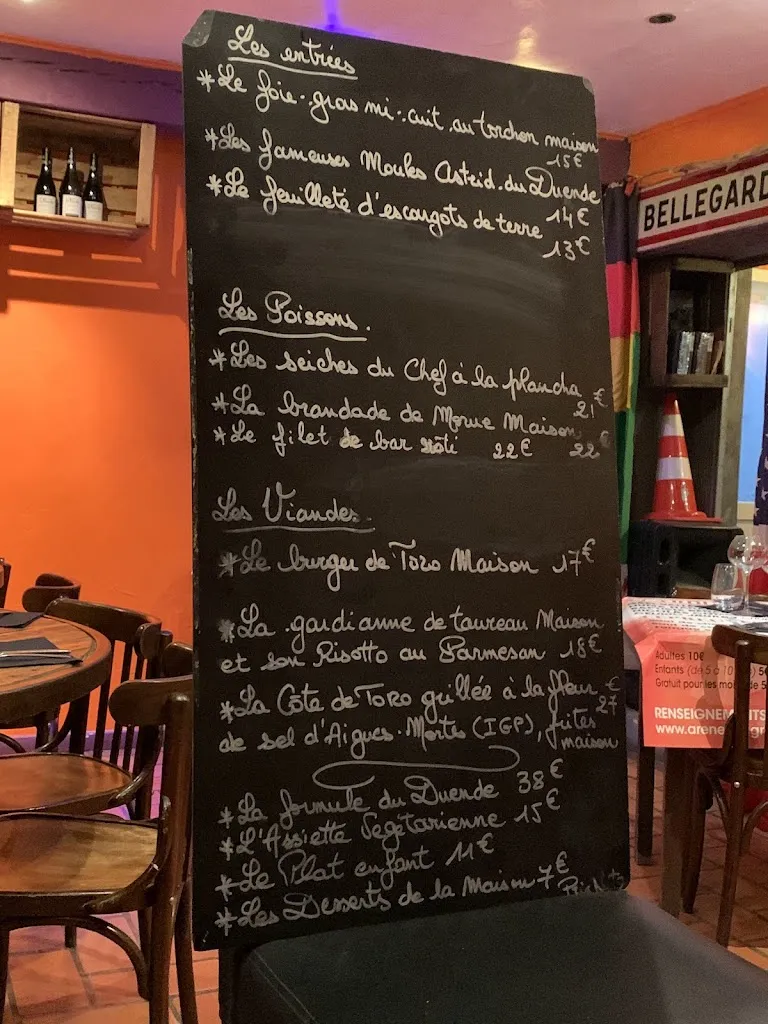 Les entrées
*Le foie-gras mi-cuit au torchon maison
15€
*Les fameuses Moules Astrid du Duende
14€
*Le feuilleté d'escargots de terre
13€
Les Poissons.
*Les seiches du Chef à la plancha
21€
*La brandade de Morue Maison
22€
*Le filet de bar rôti 22€
Les Viandes.
*Le burger de Toro Maison 17€
*La gardianne de taureau Maison
et son Risotto au Parmesan 18€
*La Côte de Toro grillée à la fleur 27€
de sel d'Aigues-Mortes (IGP), frites
maison
*La formule du Duende 38€
*L'Assiette Végétarienne 15€
*Le Plat enfant 11€
*Les Desserts de la Maison 7€
Prix Nets
BELLEGARD
Adultes 10€
Enfants (de 5 à 10
Gratuit pour les mo de 5
RENSEIGNEMENTS
www.arene